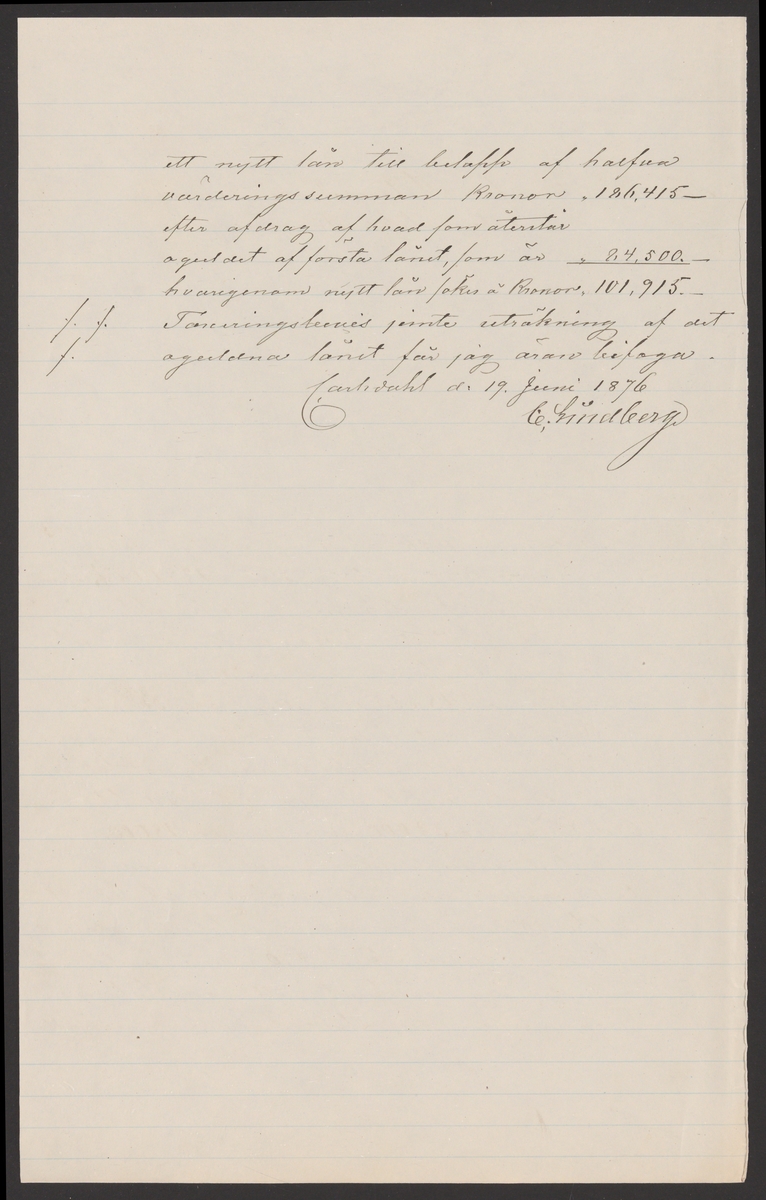 ett nytt lån till belopp af halfva
värderingssumman Kronor „ 186,415 —
efter afdrag af hvad som återstår
oguldet af första lånet, som är „ 84,500. —
hvarigenom nytt lån sökes à Kronor „ 101,915. —
./. ./. Taxeringsbevis jemte uträkning af det
./. oguldna lånet får jag äran bifoga.
Carlsdahl d. 19. Juni 1876
C. Lindberg